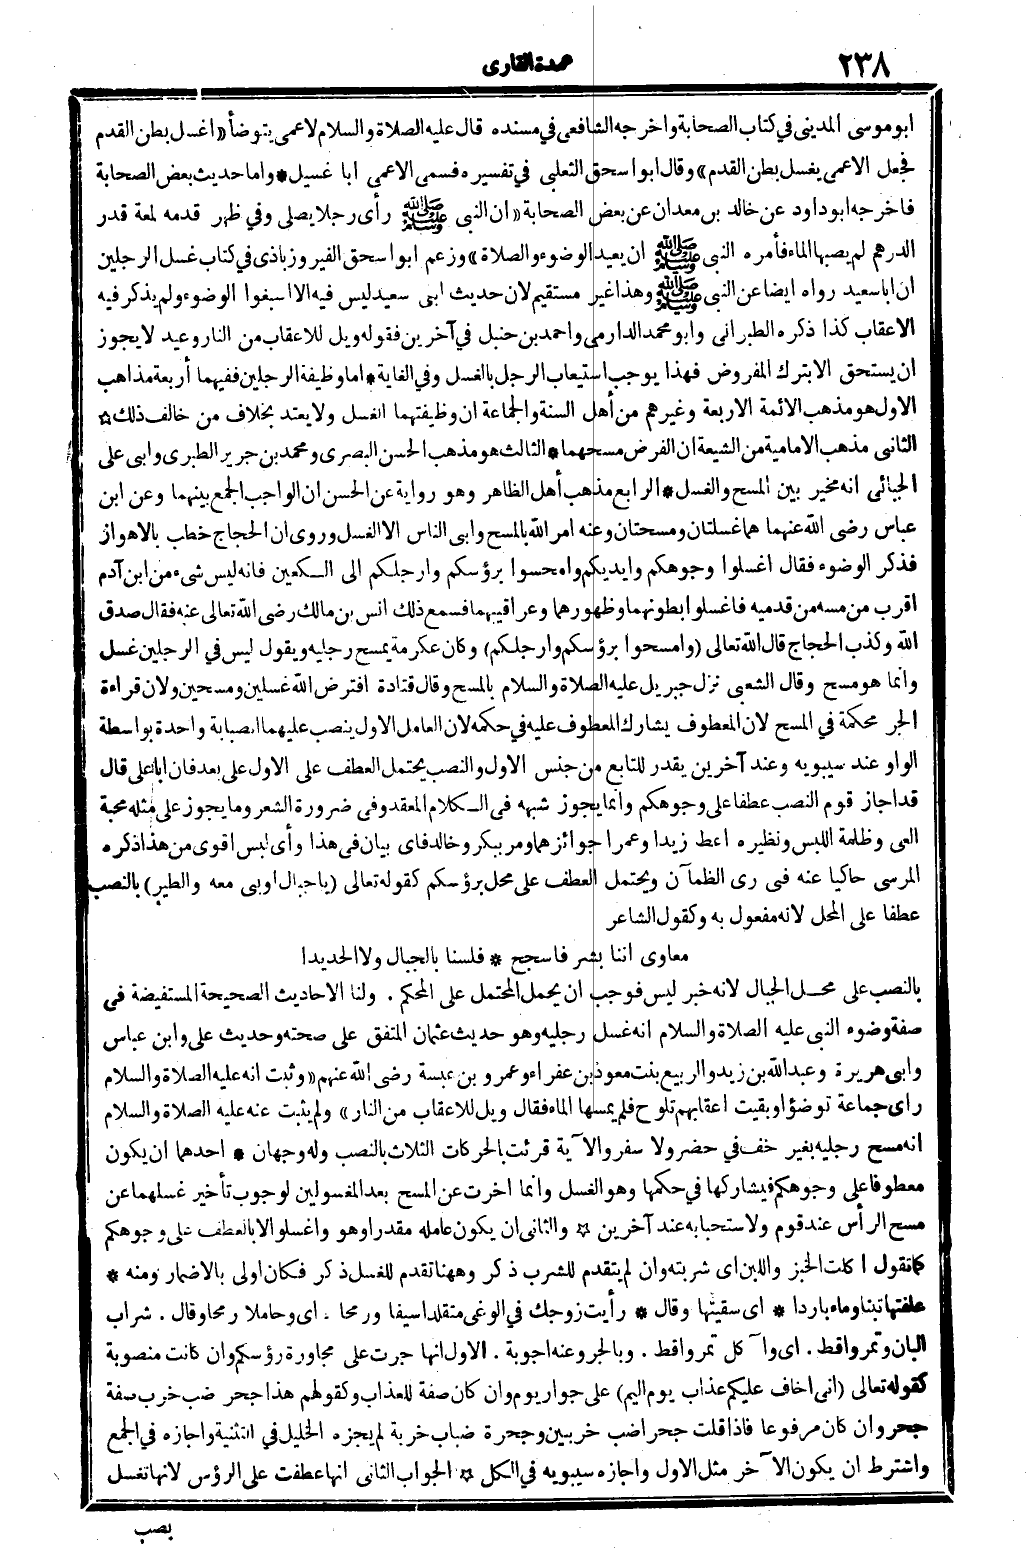 ٢٣٨
عمدة القارى
ابو موسى المدينى في كتاب الصحابة واخرجه الشافعى في مسنده قال عليه الصلاة والسلام لاعمى يتوضأ «اغسل بطن القدم
فجعل الاعمى يغسل بطن القدم» وقال ابو اسحق الثعلبى في تفسيره فسمى الاعمى ابا غسيل * واما حديث بعض الصحابة
فاخرجه ابو داود عن خالد بن معدان عن بعض الصحابة «ان النبى ﷺ رأى رجلا يصلى وفي ظهر قدمه لمعة قدر
الدرهم لم يصبها الماء فأمره النبى ﷺ ان يعيد الوضوء والصلاة» وزعم ابو اسحق الفيروزباذى في كتاب غسل الرجلين
ان ابا سعيد رواه ايضا عن النبى ﷺ وهذا غير مستقيم لان حديث ابى سعيد ليس فيه الا اسبغوا الوضوء ولم يذكر فيه
الاعقاب كذا ذكره الطبرانى وابو محمد الدارمى واحمد بن حنبل في آخرين فقوله ويل للاعقاب من النار وعيد لا يجوز
ان يستحق الا بترك المفروض فهذا يوجب استيعاب الرجل بالغسل وفي الغاية * اما وظيفة الرجلين ففيهما أربعة مذاهب
الاول هو مذهب الائمة الاربعة وغيرهم من أهل السنة والجماعة ان وظيفتهما الغسل ولا يعتد بخلاف من خالف ذلك ☆
الثانى مذهب الامامية من الشيعة ان الفرض مسحهما * الثالث هو مذهب الحسن البصرى ومحمد بن جرير الطبرى وابى على
الجبائى انه مخير بين المسح والغسل * الرابع مذهب أهل الظاهر وهو رواية عن الحسن ان الواجب الجمع بينهما وعن ابن
عباس رضى الله عنهما هما غسلتان ومسحتان وعنه امر الله بالمسح وابى الناس الا الغسل وروى ان الحجاج خطب بالاهواز
فذكر الوضوء فقال اغسلوا وجوهكم وايديكم وامحسوا برؤسكم وارجلكم الى الكعبين فانه ليس شىء من ابن آدم
اقرب من مسه من قدميه فاغسلوا بطونهما وظهورهما وعراقيبهما فسمع ذلك انس بن مالك رضى الله تعالى عنه فقال صدق
الله وكذب الحجاج قال الله تعالى (وامسحوا برؤسكم وارجلكم) وكان عكرمة يمسح رجليه ويقول ليس في الرجلين غسل
وانما هو مسح وقال الشعبى نزل جبريل عليه الصلاة والسلام بالمسح وقال قتادة افترض الله غسلين ومسحين ولان قراءة
الجر محكمة في المسح لان المعطوف يشارك المعطوف عليه في حكمه لان العامل الاول ينصب عليهما انصبابة واحدة بواسطة
الواو عند سيبويه وعند آخرين يقدر للتابع من جنس الاول والنصب يحتمل العطف على الاول على بعد فان ابا على قال
قد اجاز قوم النصب عطفا على وجوهكم وانما يجوز شبهه فى الكلام المعقد وفى ضرورة الشعر وما يجوز على مثله محبة
العى وظلمة اللبس ونظيره اعط زيدا وعمرا جوائزهما ومر ببكر وخالد فاى بيان فى هذا وأى لبس اقوى من هذا ذكره
المرسى حاكيا عنه فى رى الظمآن ويحتمل العطف على محل برؤسكم كقوله تعالى (يا جبال اوبى معه والطير) بالنصب
عطفا على المحل لانه مفعول به وكقول الشاعر
معاوى اننا بشر فاسجح * فلسنا بالجبال ولا الحديدا
بالنصب على محل الجبال لانه خبر ليس فوجب ان يحمل المحتمل على المحكم . ولنا الاحاديث الصحيحة المستفيضة فى
صفة وضوء النبى عليه الصلاة والسلام انه غسل رجليه وهو حديث عثمان المتفق على صحته وحديث على وابن عباس
وابى هريرة وعبد الله بن زيد والربيع بنت معوذ بن عفراء وعمرو بن عبسة رضى الله عنهم «وثبت انه عليه الصلاة والسلام
رأى جماعة توضؤا وبقيت اعقابهم تلوح فلم يمسها الماء فقال ويل للاعقاب من النار» ولم يثبت عنه عليه الصلاة والسلام
انه مسح رجليه بغير خف في حضر ولا سفر والآية قرئت بالحركات الثلاث بالنصب وله وجهان * احدهما ان يكون
معطوفا على وجوهكم فيشاركها في حكمها وهو الغسل وانما اخرت عن المسح بعد المغسولين لوجوب تأخير غسلهما عن
مسح الرأس عند قوم ولاستحبابه عند آخرين ☆ والثانى ان يكون عامله مقدرا وهو واغسلوا لا بالعطف على وجوهكم
كما تقول اكلت الخبز واللبن اى شربته وان لم يتقدم للشرب ذكر وههنا تقدم للغسل ذكر فكان اولى بالاضمار ومنه *
علفتها تبنا وماء باردا * اى سقيتها وقال * رأيت زوجك في الوغى متقلدا سيفا ورمحا . اى وحاملا رمحا وقال . شراب
البان وتمر واقط . اى وآكل تمر واقط . وبالجر وعنه اجوبة . الاول انها جرت على مجاورة رؤسكم وان كانت منصوبة
كقوله تعالى (انى اخاف عليكم عذاب يوم اليم) على جوار يوم وان كان صفة للعذاب وكقولهم هذا جحر ضب خرب صفة
جحر وان كان مرفوعا فاذا قلت جحرا ضب خربين وجحرة ضباب خربة لم يجزه الخليل في التثنية واجازه في الجمع
واشترط ان يكون الآخر مثل الاول واجازه سيبويه في الكل ☆ الجواب الثانى انها عطفت على الرؤس لانها تغسل
بصب